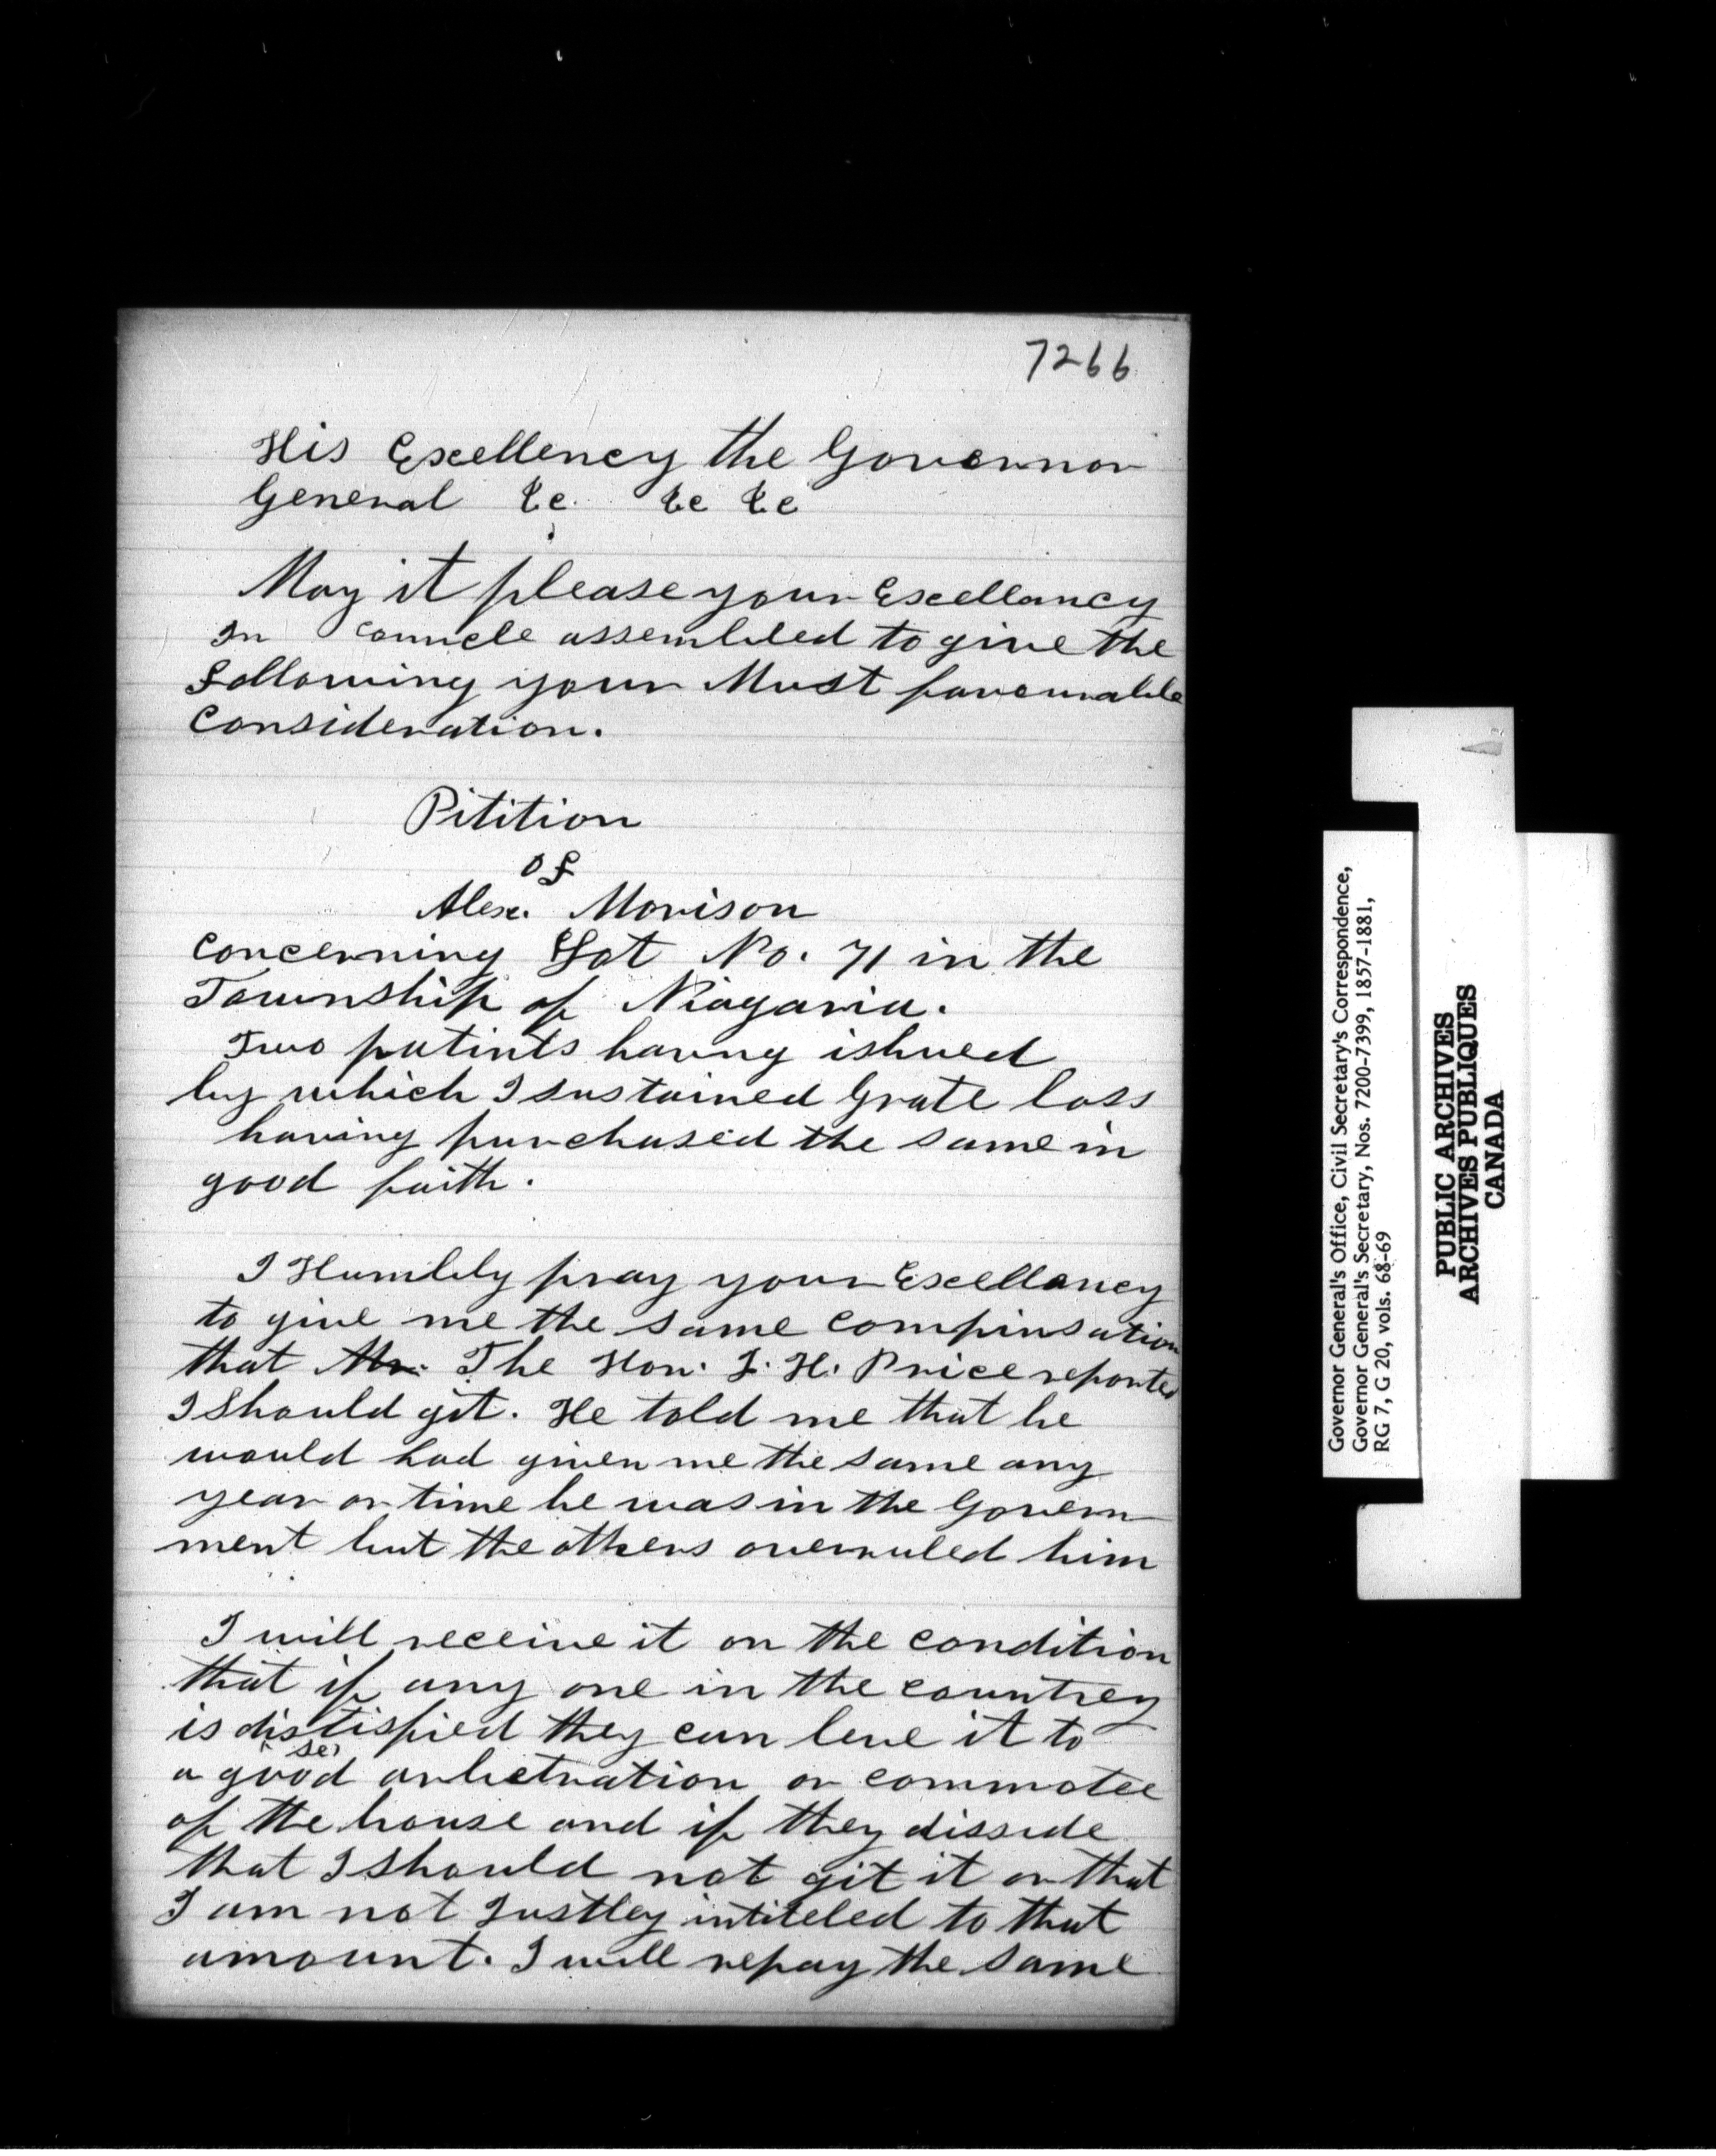 7266
His Excellency the Governor
General &c. &c &c
May it please your Excellancy
In Councle assembled to give the
Following your Most favourable
Consideration.
Pitition
of
Alex. Morison
Concerning Lot No. 71 in the
Township of Niagaria.
Two patints having ishued
by which I sustained Grate loss
having purchased the same in
good faith.
I Humbley pray your Excellancy
to give me the same compinsation
that Mr. The Hon. J. H. Price reported
I should git. He told me that he
would had given me the same any
year or time he was in the Govern
ment but the others overruled him
I will receive it on the condition
that if any one in the countrey
is distisfied they can leve it to
se
a good arbetration or commotee
of the house and if they disside
that I should not git it or that
I am not Justley intiteled to that
amount. I will repay the same
Governor General's Office, Civil Secretary's Correspondence,
Governor General's Secretary, Nos. 7200-7399, 1857-1881,
RG 7, G 20, vols. 68-69
PUBLIC ARCHIVES
ARCHIVES PUBLIQUES
CANADA